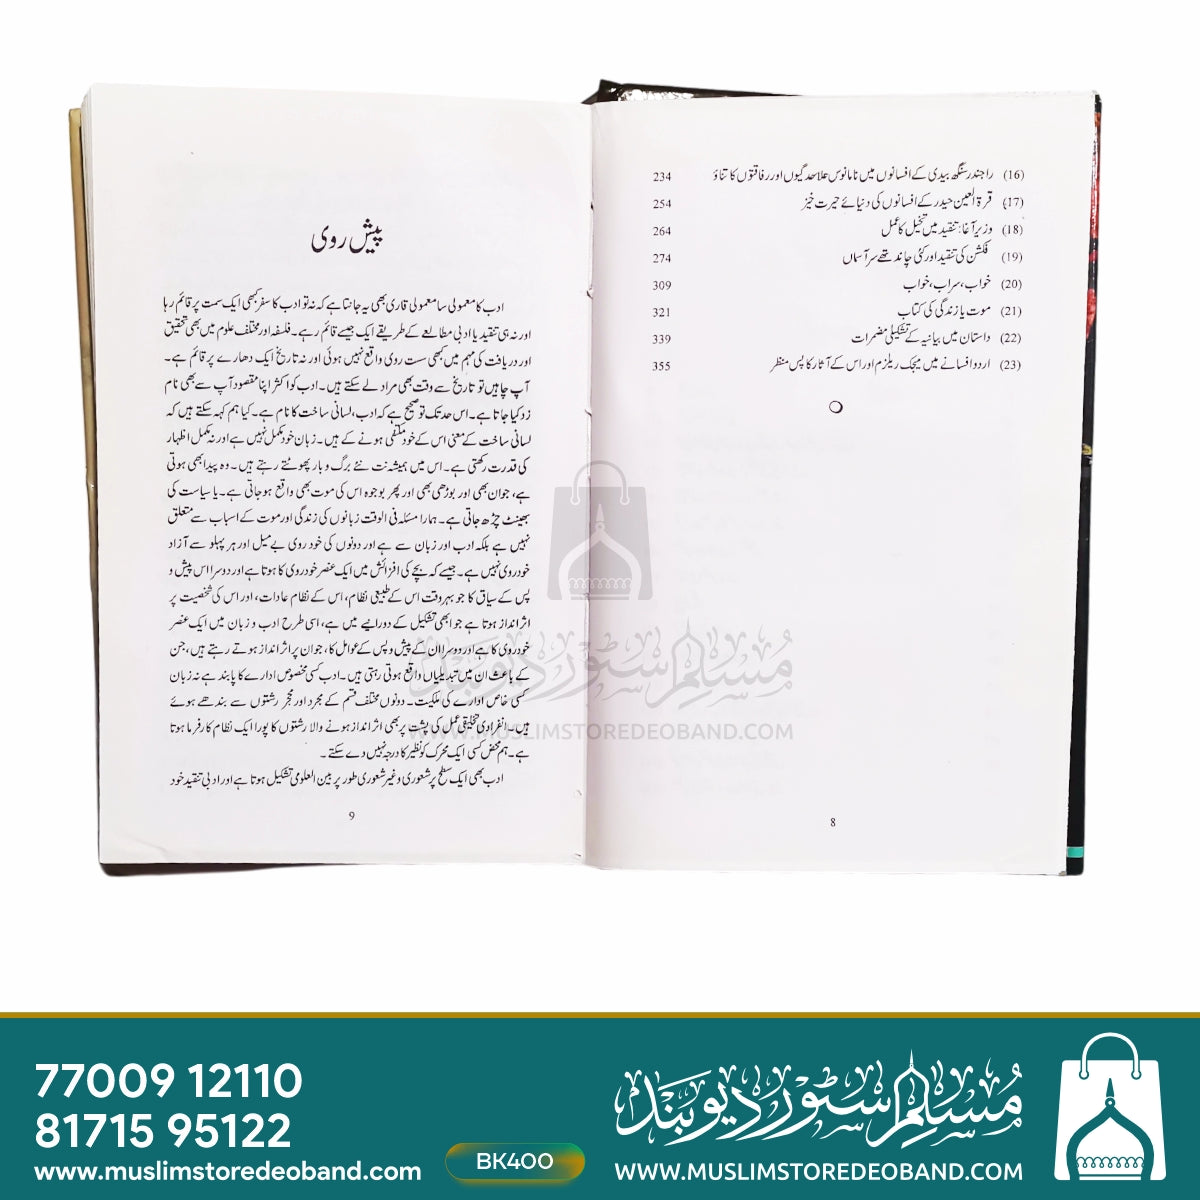 (16) راجندر سنگھ بیدی کے افسانوں میں نامانوس علاحدگیوں اور رفاقتوں کا تناؤ 234
(17) قرۃ العین حیدر کے افسانوں کی دنیائے حیرت خیز 254
(18) وزیر آغا: تنقید میں تخیل کا عمل 264
(19) فکشن کی تنقید اور کئی چاند تھے سر آسماں 274
(20) خواب، سراب، خواب 309
(21) موت یا زندگی کی کتاب 321
(22) داستان میں بیانیہ کے تشکیلی مضمرات 339
(23) اردو افسانے میں میجک ریلزم اور اس کے آثار کا پس منظر 355
8
پیش روی
ادب کا معمولی سا معمولی قاری بھی یہ جانتا ہے کہ نہ تو ادب کا سفر کبھی ایک سمت پر قائم رہا
اور نہ ہی تنقید یا ادبی مطالعے کے طریقے ایک جیسے قائم رہے۔ فلسفہ اور مختلف علوم میں بھی تحقیق
اور دریافت کی مہم میں کبھی سست روی واقع نہیں ہوئی اور نہ تاریخ ایک دھارے پر قائم ہے۔
آپ چاہیں تو تاریخ سے وقت بھی مراد لے سکتے ہیں۔ ادب کو اکثر اپنا مقصود آپ سے بھی نام
زد کیا جاتا ہے۔ اس حد تک تو صحیح ہے کہ ادب، لسانی ساخت کا نام ہے۔ کیا ہم کہہ سکتے ہیں کہ
لسانی ساخت کے معنی اس کے خود مکتفی ہونے کے ہیں۔ زبان خود مکمل نہیں ہے اور نہ مکمل اظہار
کی قدرت رکھتی ہے۔ اس میں ہمیشہ نت نئے برگ و بار پھوٹتے رہتے ہیں۔ وہ پیدا بھی ہوتی
ہے، جوان بھی اور بوڑھی بھی اور پھر بوجوہ اس کی موت بھی واقع ہو جاتی ہے۔ یا سیاست کی
بھینٹ چڑھ جاتی ہے۔ ہمارا مسئلہ فی الوقت زبانوں کی زندگی اور موت کے اسباب سے متعلق
نہیں ہے بلکہ ادب اور زبان سے ہے اور دونوں کی خود روی بے میل اور ہر پہلو سے آزاد
خود روی نہیں ہے۔ جیسے کہ بچے کی افزائش میں ایک عنصر خود روی کا ہوتا ہے اور دوسرا اس پیش و
پس کے سیاق کا جو بہر وقت اس کے طبیعی نظام، اس کے نظام عادات، اور اس کی شخصیت پر
اثر انداز ہوتا ہے جو ابھی تشکیل کے دورانیے میں ہے، اسی طرح ادب و زبان میں ایک عنصر
خود روی کا ہے اور دوسرا ان کے پیش و پس کے عوامل کا، جو ان پر اثر انداز ہوتے رہتے ہیں، جن
کے باعث ان میں تبدیلیاں واقع ہوتی رہتی ہیں۔ ادب کسی مخصوص ادارے کا پابند ہے نہ زبان
کسی خاص ادارے کی ملکیت۔ دونوں مختلف قسم کے مجرد اور مجر رشتوں سے بندھے ہوئے
ہیں۔ انفرادی تخلیقی عمل کی پشت پر بھی اثر انداز ہونے والا رشتوں کا پورا ایک نظام کارفرما ہوتا
ہے۔ ہم محض کسی ایک محرک کو نظیر کا درجہ نہیں دے سکتے۔
ادب بھی ایک سطح پر شعوری و غیر شعوری طور پر بین العلومی تشکیل ہوتا ہے اور ادبی تنقید خود
9
مسلم سٹور دیوبند
WWW.MUSLIMSTOREDEOBAND.COM
77009 12110
81715 95122
www.muslimstoredeoband.com
BK400
مسلم سٹور دیوبند
WWW.MUSLIMSTOREDEOBAND.COM